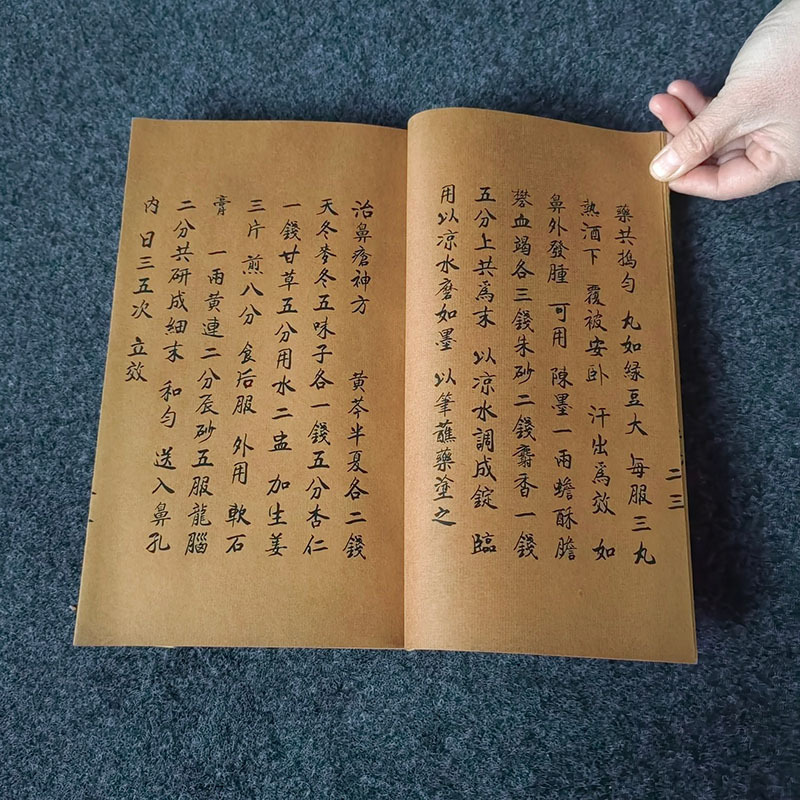 藥共搗勻 丸如緑豆大 每服三丸
熱酒下 覆被安卧 汗出爲效 如
鼻外發腫 可用 陳墨一兩蟾酥膽
礬血竭各三錢朱砂二錢麝香一錢
五分上共爲末 以凉水調成錠 臨
用以凉水磨如墨 以筆蘸藥塗之
二三
治鼻瘡神方 黄芩半夏各二錢
天冬麥冬五味子各一錢五分杏仁
一錢甘草五分用水二盅 加生姜
三片 煎八分 食后服 外用 軟石
膏 一兩黄連二分辰砂五服龍腦
二分共研成細末 和勻 送入鼻孔
内 日三五次 立效